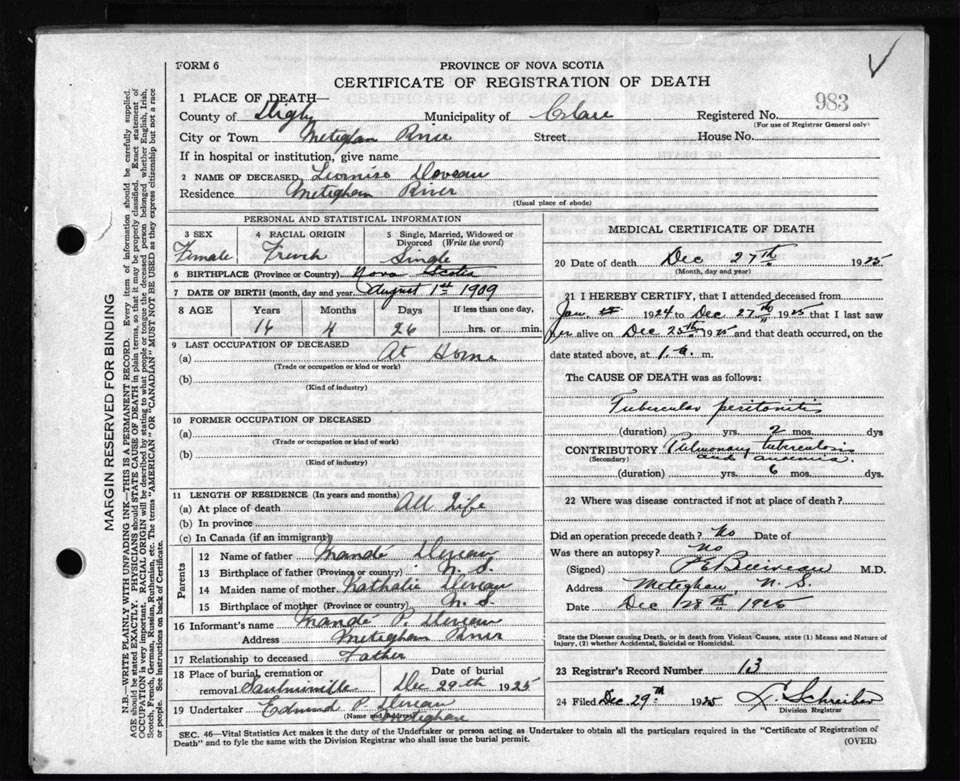 FORM 6
PROVINCE OF NOVA SCOTIA
CERTIFICATE OF REGISTRATION OF DEATH
983
1 PLACE OF DEATH—
County of Digby Municipality of Clare Registered No.
(For use of Registrar General only)
City or Town Meteghan River Street House No.
If in hospital or institution, give name
2 NAME OF DECEASED
Residence Meteghan River
(Usual place of abode)
PERSONAL AND STATISTICAL INFORMATION
3 SEX 4 RACIAL ORIGIN 5 Single, Married, Widowed or Divorced (Write the word)
Female French Single
6 BIRTHPLACE (Province or Country) Nova Scotia
7 DATE OF BIRTH (month, day and year August 1st 1909
8 AGE Years Months Days If less than one day,
16 4 26 hrs. or min.
9 LAST OCCUPATION OF DECEASED
(a) At Home
(Trade or occupation or kind or work)
(b)
(Kind of industry)
10 FORMER OCCUPATION OF DECEASED
(a)
(Trade or occupation or kind of work)
(b)
(Kind of industry)
11 LENGTH OF RESIDENCE (In years and months)
(a) At place of death All Life
(b) In province
(c) In Canada (if an immigrant)
Parents
12 Name of father Mandé
13 Birthplace of father (Province or country) N. S.
14 Maiden name of mother
15 Birthplace of mother (Province or country) N. S.
16 Informant's name Mandé P.
Address Meteghan River
17 Relationship to deceased Father
18 Place of burial, cremation or removal Saulnierville Date of burial Dec 29th 1925
19 Undertaker Edmund P.
(Name and Address) Meteghan
MEDICAL CERTIFICATE OF DEATH
20 Date of death Dec 27th 1925
(Month, day and year)
21 I HEREBY CERTIFY, that I attended deceased from
Jan 1924 to Dec 27th 1925 that I last saw
her alive on Dec 25th 1925 and that death occurred, on the
date stated above, at 1 a. m.
The CAUSE OF DEATH was as follows:
Tubercular peritonitis
(duration) yrs. 2 mos. dys
CONTRIBUTORY Pulmonary tuberculosis
(Secondary) and anaemia.
(duration) yrs. 6 mos. dys.
22 Where was disease contracted if not at place of death?
Did an operation precede death? No Date of
Was there an autopsy? No
(Signed) M.D.
Address Meteghan N. S.
Date Dec 28th 1925
State the Disease causing Death, or in death from Violent Causes, state (1) Means and Nature of
Injury, (2) whether Accidental, Suicidal or Homicidal.
23 Registrar's Record Number 13
24 Filed Dec 29th 1925 Schreiber
Division Registrar
SEC. 46—Vital Statistics Act makes it the duty of the Undertaker or person acting as Undertaker to obtain all the particulars required in the "Certificate of Registration of
Death" and to fyle the same with the Division Registrar who shall issue the burial permit.
(OVER)
MARGIN RESERVED FOR BINDING
N.B.—WRITE PLAINLY WITH UNFADING INK—THIS IS A PERMANENT RECORD. Every item of information should be carefully supplied.
AGE should be stated EXACTLY. PHYSICIANS should STATE CAUSE OF DEATH in plain terms, so that it may be properly classified. Exact statement of
OCCUPATION is very important. RACIAL ORIGIN will be described by stating to what people or tongue the deceased person belonged whether English, Irish,
Scotch, French, German, Russian, Ruthenian, etc. The terms "AMERICAN" OR "CANADIAN" MUST NOT BE USED as they express citizenship but not a race
or people. See instructions on back of Certificate.